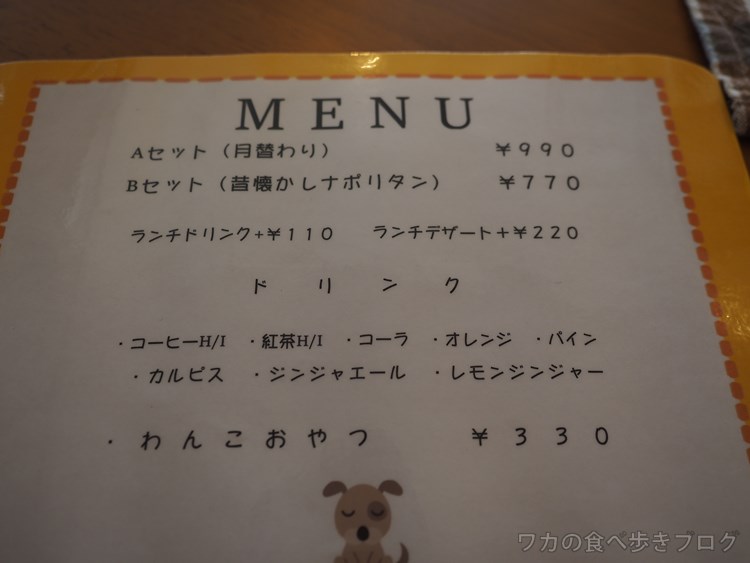 MENU
Aセット（月替わり） ￥990
Bセット（昔懐かしナポリタン） ￥770
ランチドリンク+￥110 ランチデザート+￥220
ドリンク
・コーヒーH/I ・紅茶H/I ・コーラ ・オレンジ ・パイン
・カルピス ・ジンジャエール ・レモンジンジャー
・わんこおやつ ￥330
ワカの食べ歩きブログ